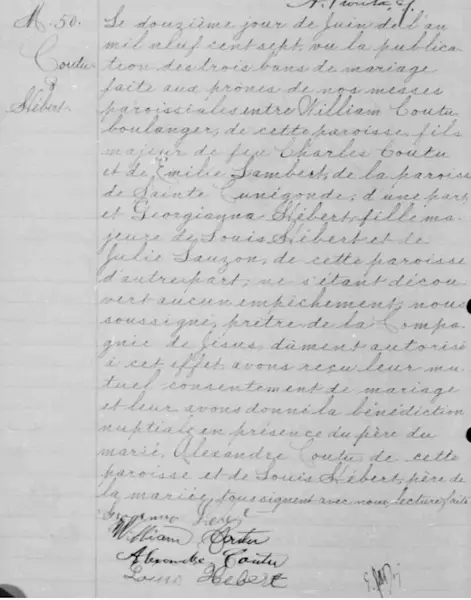 M. 50.
Coutu
&
Hébert
Le douzième jour de Juin de l'an
mil neuf cent sept, vu la publica
tion des trois bans de mariage
faite aux prônes de nos messes
paroissiales entre William Coutu
boulanger, de cette paroisse, fils
majeur de feu Charles Coutu
et de Emilie Lambert, de la paroisse
de Sainte Cunégonde, d'une part
et Georgianna Hébert, fille ma-
jeure de Louis Hébert et de
Julie Lauzon, de cette paroisse
d'autre part; ne s'étant décou
vert aucun empêchement, nous
soussigné, prêtre de la Compa
gnie de Jésus, dûment autorisé
à cet effet avons reçu leur mu
tuel consentement de mariage
et leur avons donné la bénédiction
nuptiale en présence du père du
marié, Alexandre Coutu de cette
paroisse et de Louis Hébert, père de
la mariée, tous signent avec nous, lecture faite
William Coutu
Alexandre Coutu
Louis Hébert